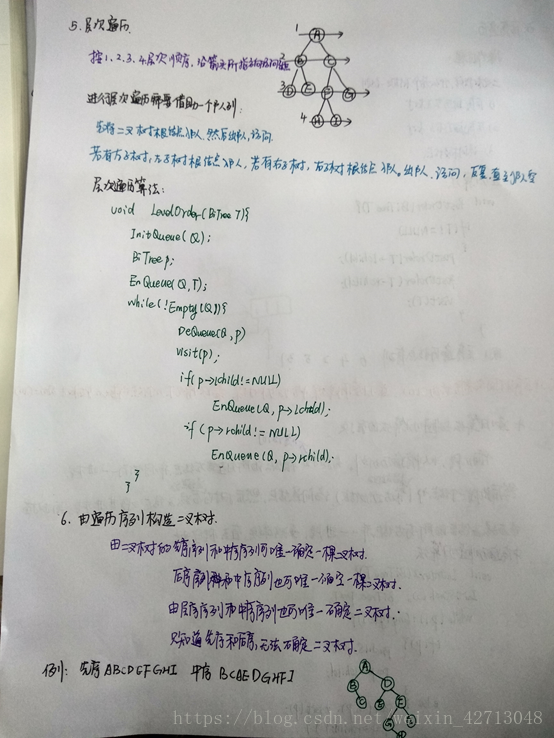 5.层次遍历.
按1.2.3.4层次顺序,沿箭头所指方向访问
进行层次遍历需要借助一个队列:
先将二叉树根结点入队,然后出队,访问.
若有左子树,左子树根结点入队,若有右子树,右子树根结点入队。出队、访问,反复,直至队空
层次遍历算法:
void LevelOrder(BiTree T){
InitQueue(Q);
BiTree p;
EnQueue(Q,T);
while(!Empty(Q)){
DeQueue(Q,p)
visit(p);
if(p->lchild!=NULL)
EnQueue(Q,p->lchild);
if(p->rchild!=NULL)
EnQueue(Q,p->rchild);
}
}
1 A
2 B C
3 D E F G
4 H I
6.由遍历序列构造二叉树.
由二叉树的先序序列和中序序列可唯一确定一棵二叉树.
后序序列和中序序列也可唯一确定一棵二叉树.
由层序序列和中序序列也可唯一确定二叉树.
只知道先序和后序,无法确定二叉树.
例: 先序ABCDEFGHI 中序BCAEDGHFI
A
B D
C E F
G I
https://blog.csdn.net/weixin_42713048